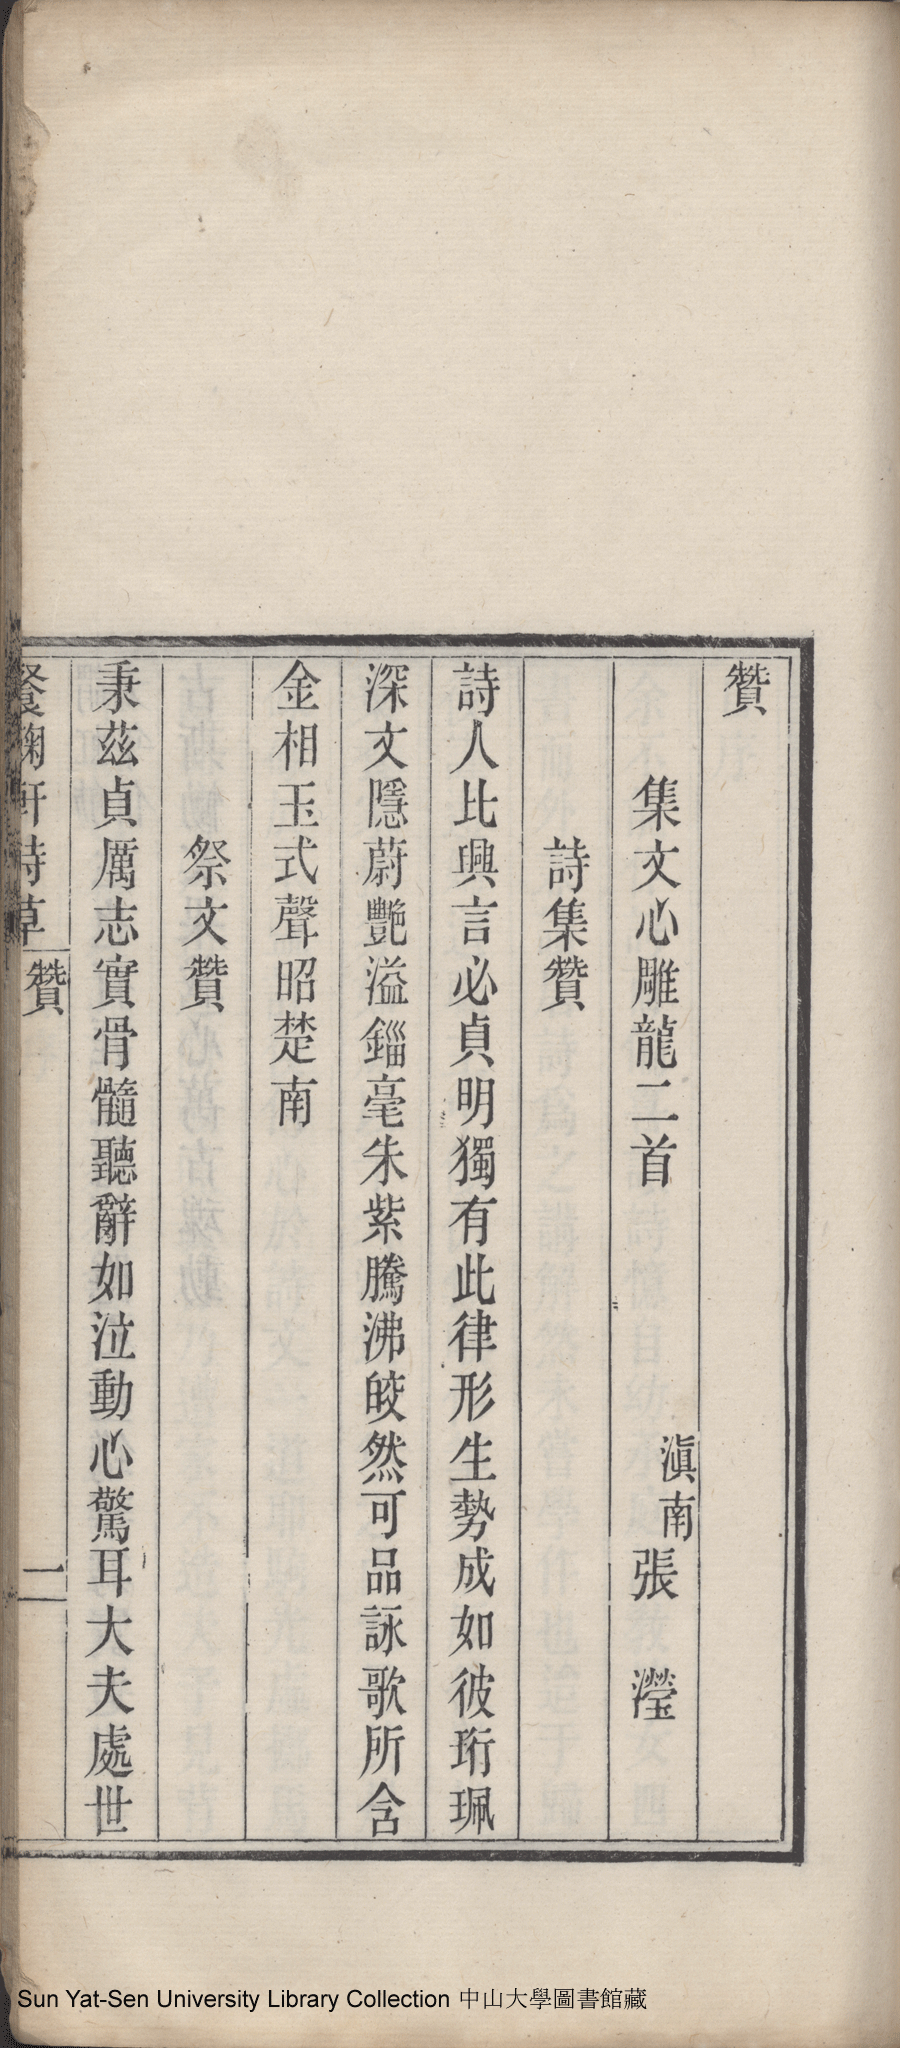 贊
集文心雕龍二首
滇南張 瀅
詩集贊
詩人比興言必貞明獨有此律形生勢成如彼珩珮
深文隱蔚艷溢錙毫朱紫騰沸皎然可品詠歌所含
金相玉式聲昭楚南
祭文贊
秉茲貞厲志實骨髓聽辭如泣動心驚耳大夫處世
餐菊軒詩草 贊 二
Sun Yat-Sen University Library Collection 中山大學圖書館藏